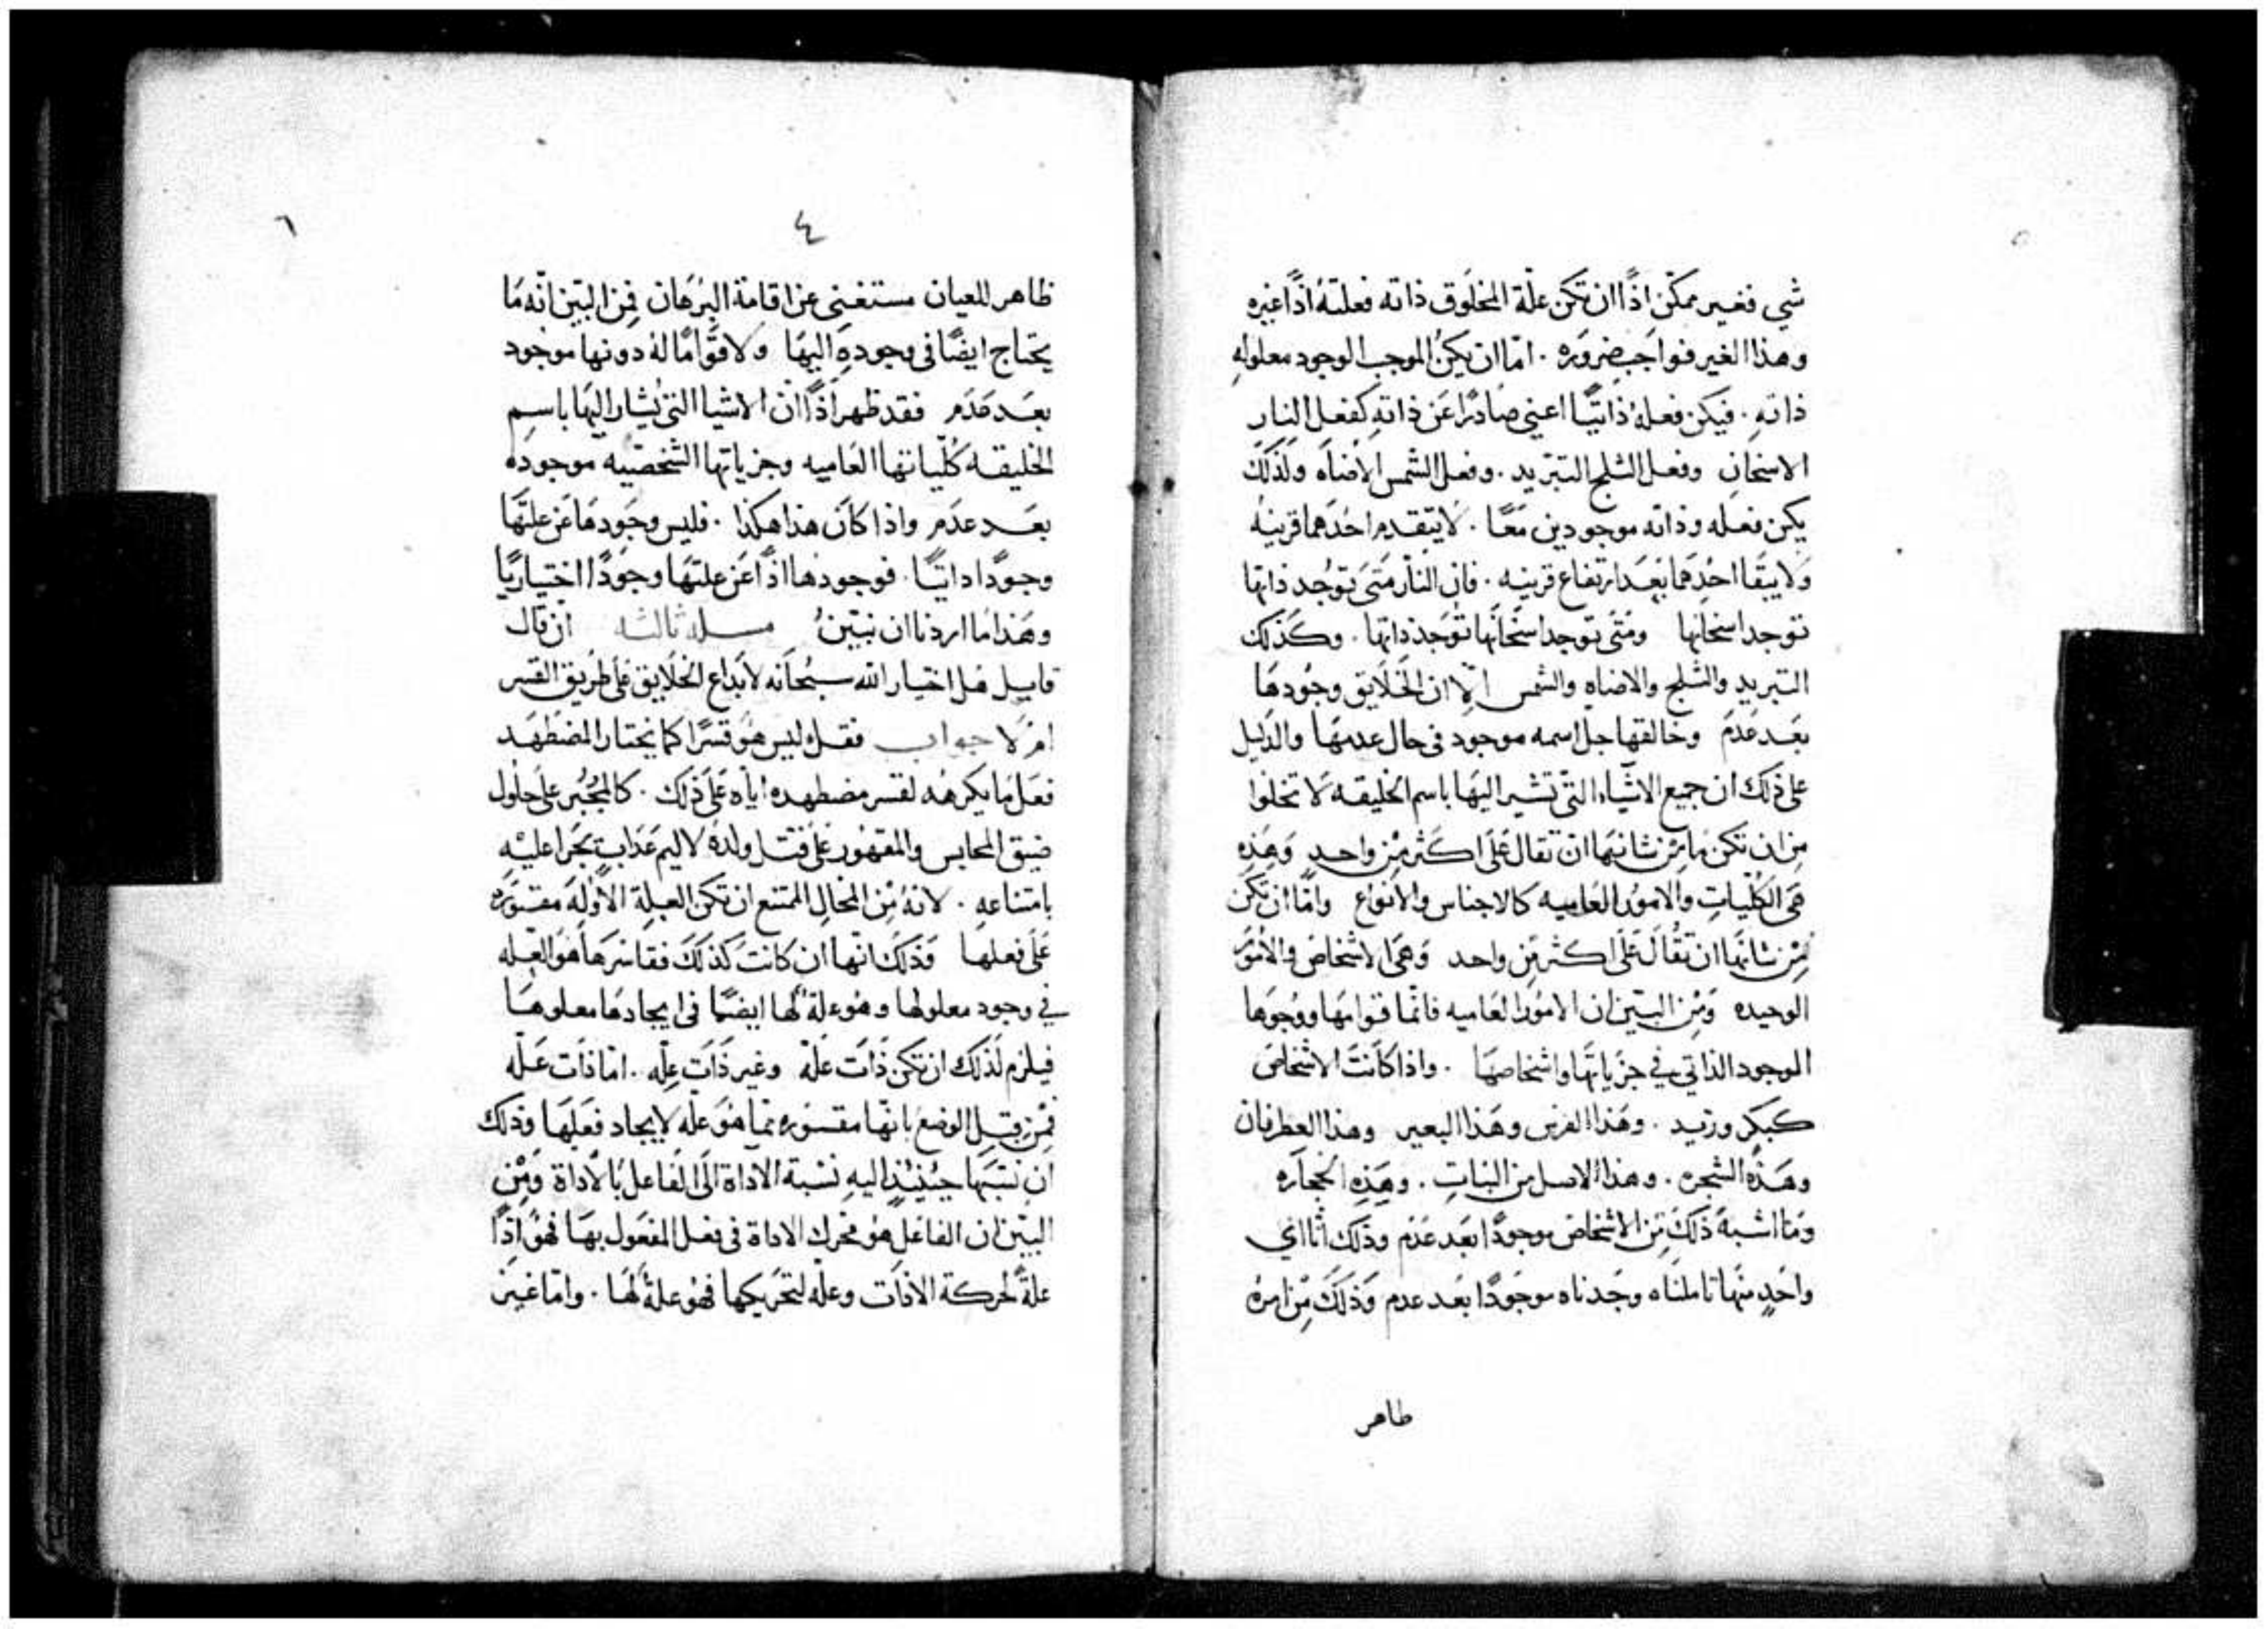 شي فغير ممكن اذًا ان تكن علّة المخلوق ذاته فعلتهُ اذًا غيره
وهذا الغير فواجب ضروره . امّا ان يكن الموجب الوجود معلولهِ
ذاتهِ . فيكن فعلهُ ذاتيًّا اعني صَادرًا عَن ذاتهِ كفعل النارِ
الاسخان وفعل الثلج التبريد . وفعل الشمس الاضاه ولذَلكَ
يكن فعله وذاته موجودين مَعًا . لَا يتقدم احدَهما قرينهُ
وَلا يبقا احدهَما بَعدَ ارتفاع قرينه . فان النار مَتىَ توُجد ذاتها
توجد اسخانها ومَتى توجد اسخَانها توُجَد ذاتها . وكَذلك
التبريد والثلج والاضاه والشمس الّا ان الخَلَايق وجُودهَا
بعَد عَدَم وخالقها جل اسمه موجود فى حال عدمهَا والدَليل
على ذلك ان جميع الاشيَاء التى تشير اليهَا باسم الخليقه لَا تخلوا
من ان تكن مَا من شانهَا ان تقال عَلَى اكثر مِن واحدٍ وَهَذِه
هَى الكُلّيات والامُور العَاميه كالاجناس والانواع وامّا ان تكَن
مِن شانهَا ان تقُال عَلَى اكثر مِن واحد وَهَى الاشخاص والامُورُ
الوحيده وَمِن البيّن ان الامُور العَاميه فانمّا قوامهَا ووجُوَدها
الموجود الذاتي في جزيَاتهَا واشخاصهَا . واذا كَانتَ الاشخاص
كبكر وزيد . وهَذا الفرس وهَذا البعير وهذا العطرفان
وهَذه الشجره . وهذا الاصل من النباتِ . وهَذِه الحجَاره
وَمَا اشبهَ ذَلكَ مِن الاشخاص موجودًا بعَد عَدَم وذَلك انّا اي
واحَدٍ منهَا تاملناه وجَدناه موجودًا بعَد عدم وَذَلكَ مِن امرهُ
طاهر
٤
٦
ظاهر للعيان مستغنى عن اقامة البُرهَان فِمن البيّن انّه مَا
يحتاج ايضًا فى وجودهِ اليهَا ولا قوامًا لهُ دونها موجود
بعَد عَدَم فقد ظهر اذًا ان الاشيا التى يُشار اليهَا باسم
الخليقه كُلّياتها العَاميه وجزياتها الشخصّيه موجودَه
بعَد عدَم واذا كاَن هذا هكذا . فليس وجَودهَا عَن علتّهَا
وجوَدًا ذاتيًّا . فوجودهَا اذًا عَن علتهَا وجَودًا اختياريًا
وهَذا مَا اردنا ان نبيّنهُ مسله ثالثه ان قال
قايل هَل اختيار الله سبُحَانه لابدَاع الخَلَايق عَلى طَريق القسر
ام لا جواب فقل ليس هوَ قسرًا كما يختار المضطهَد
فعَل مَا يكرهُه لقسر مضطهده ايَاه عَلَى ذلك . كالمجُبر على حلول
ضيق المحابس والمقهوُر عَلى قتل ولدهُ لاليم عَذابٍ يجَرا عليَه
بامتناعه . لانهُ مِن المحَال الممتنع ان تكن العلة الاولة مقسوَره
عَلَى فعلها وَذلكَ انّها ان كانتَ كذلَكَ فقاسرهَا هَوَ العله
في وجود معلولها وهُو علةٌ لهَا ايضًا فى ايجادهَا معلولهَا
فيلزم لذَلكَ ان تكن ذَاتَ علّه وغير ذَاتَ علّه . امّا ذَات علّه
فمِن قبل الوضع بانّها مقسوُره ممّا هوَ علّه لايجاد فعلهَا وذلك
ان نسبتهَا حينيذٍ اليه نسبة الآداة الَى الفاعل بالاداة وَمِن
البيّن ان الفاعَل هوَ محرك الاداة فى فعل المفعَول بهَا فهوَ اذًا
علةً لحركة الادَات وعلّه لتحَريكها فهوَ علةٌ لهَا . وامّا غير